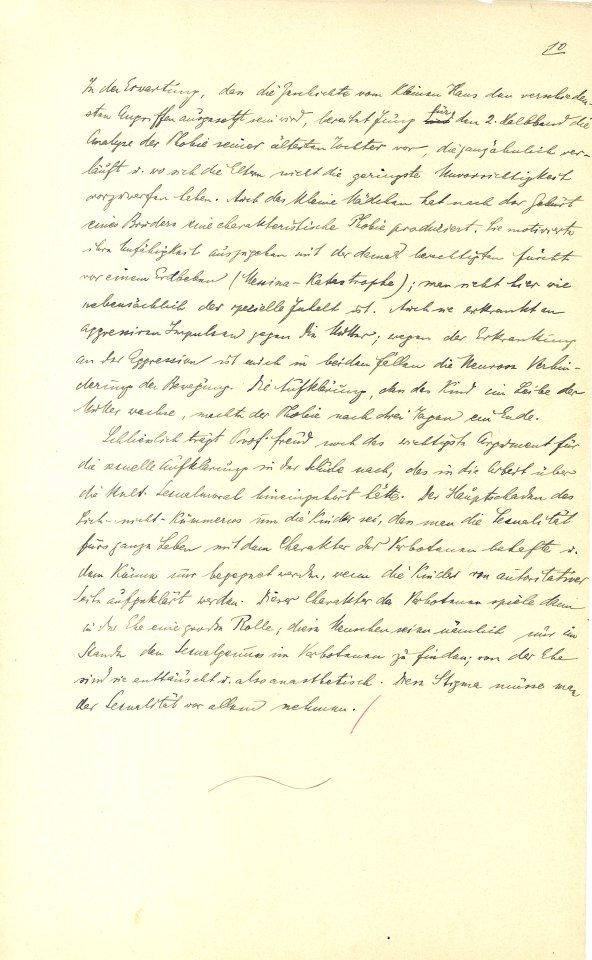 10
In der Erwartung, dass die Geschichte vom kleinen Hans den verschieden-
sten Angriffen ausgesetzt sein wird, bereitet Jung für den 2. Halbband die
Analyse der Phobie seiner ältesten Tochter vor, die ganz ähnlich ver-
läuft u. wo sich die Eltern nicht die geringste Unvorsichtigkeit
vorzuwerfen haben. Auch das kleine Mädchen hat nach der Geburt
eines Bruders eine charakteristische Phobie produziert. Sie motivierte
ihre Unfähigkeit auszugehen mit der damals berechtigten Furcht
vor einem Erdbeben (Messina-Katastrophe); man sieht hier wie
nebensächlich der spezielle Inhalt ist. Auch sie erkrankt an
aggressiven Impulsen gegen die Mutter; wegen der Erkrankung
an der Aggression ist auch in beiden Fällen die Neurose Verhin-
derung der Bewegung. Die Aufklärung, dass das Kind im Leibe der
Mutter wachse, machte der Phobie nach drei Tagen ein Ende.
Schliesslich trägt Prof. Freud noch das wichtigste Argument für
die sexuelle Aufklärung in der Schule nach, das in die Arbeit über
die Kult. Sexualmoral hineingehört hätte. Der Hauptschaden des
Sich-nicht-Kümmerns um die Kinder sei, dass man die Sexualität
fürs ganze Leben mit dem Charakter des Verbotenen behafte u.
dem könne nur begegnet werden, wenn die Kinder von autoritativer
Seite aufgeklärt werden. Dieser Charakter des Verbotenen spiele dann
in der Ehe eine große Rolle; diese Menschen seien nämlich nur im
Stande den Sexualgenuss im Verbotenen zu finden; von der Ehe
sind sie enttäuscht u. also anästhetisch. Dieses Stigma müsse man
der Sexualität vor allem nehmen.